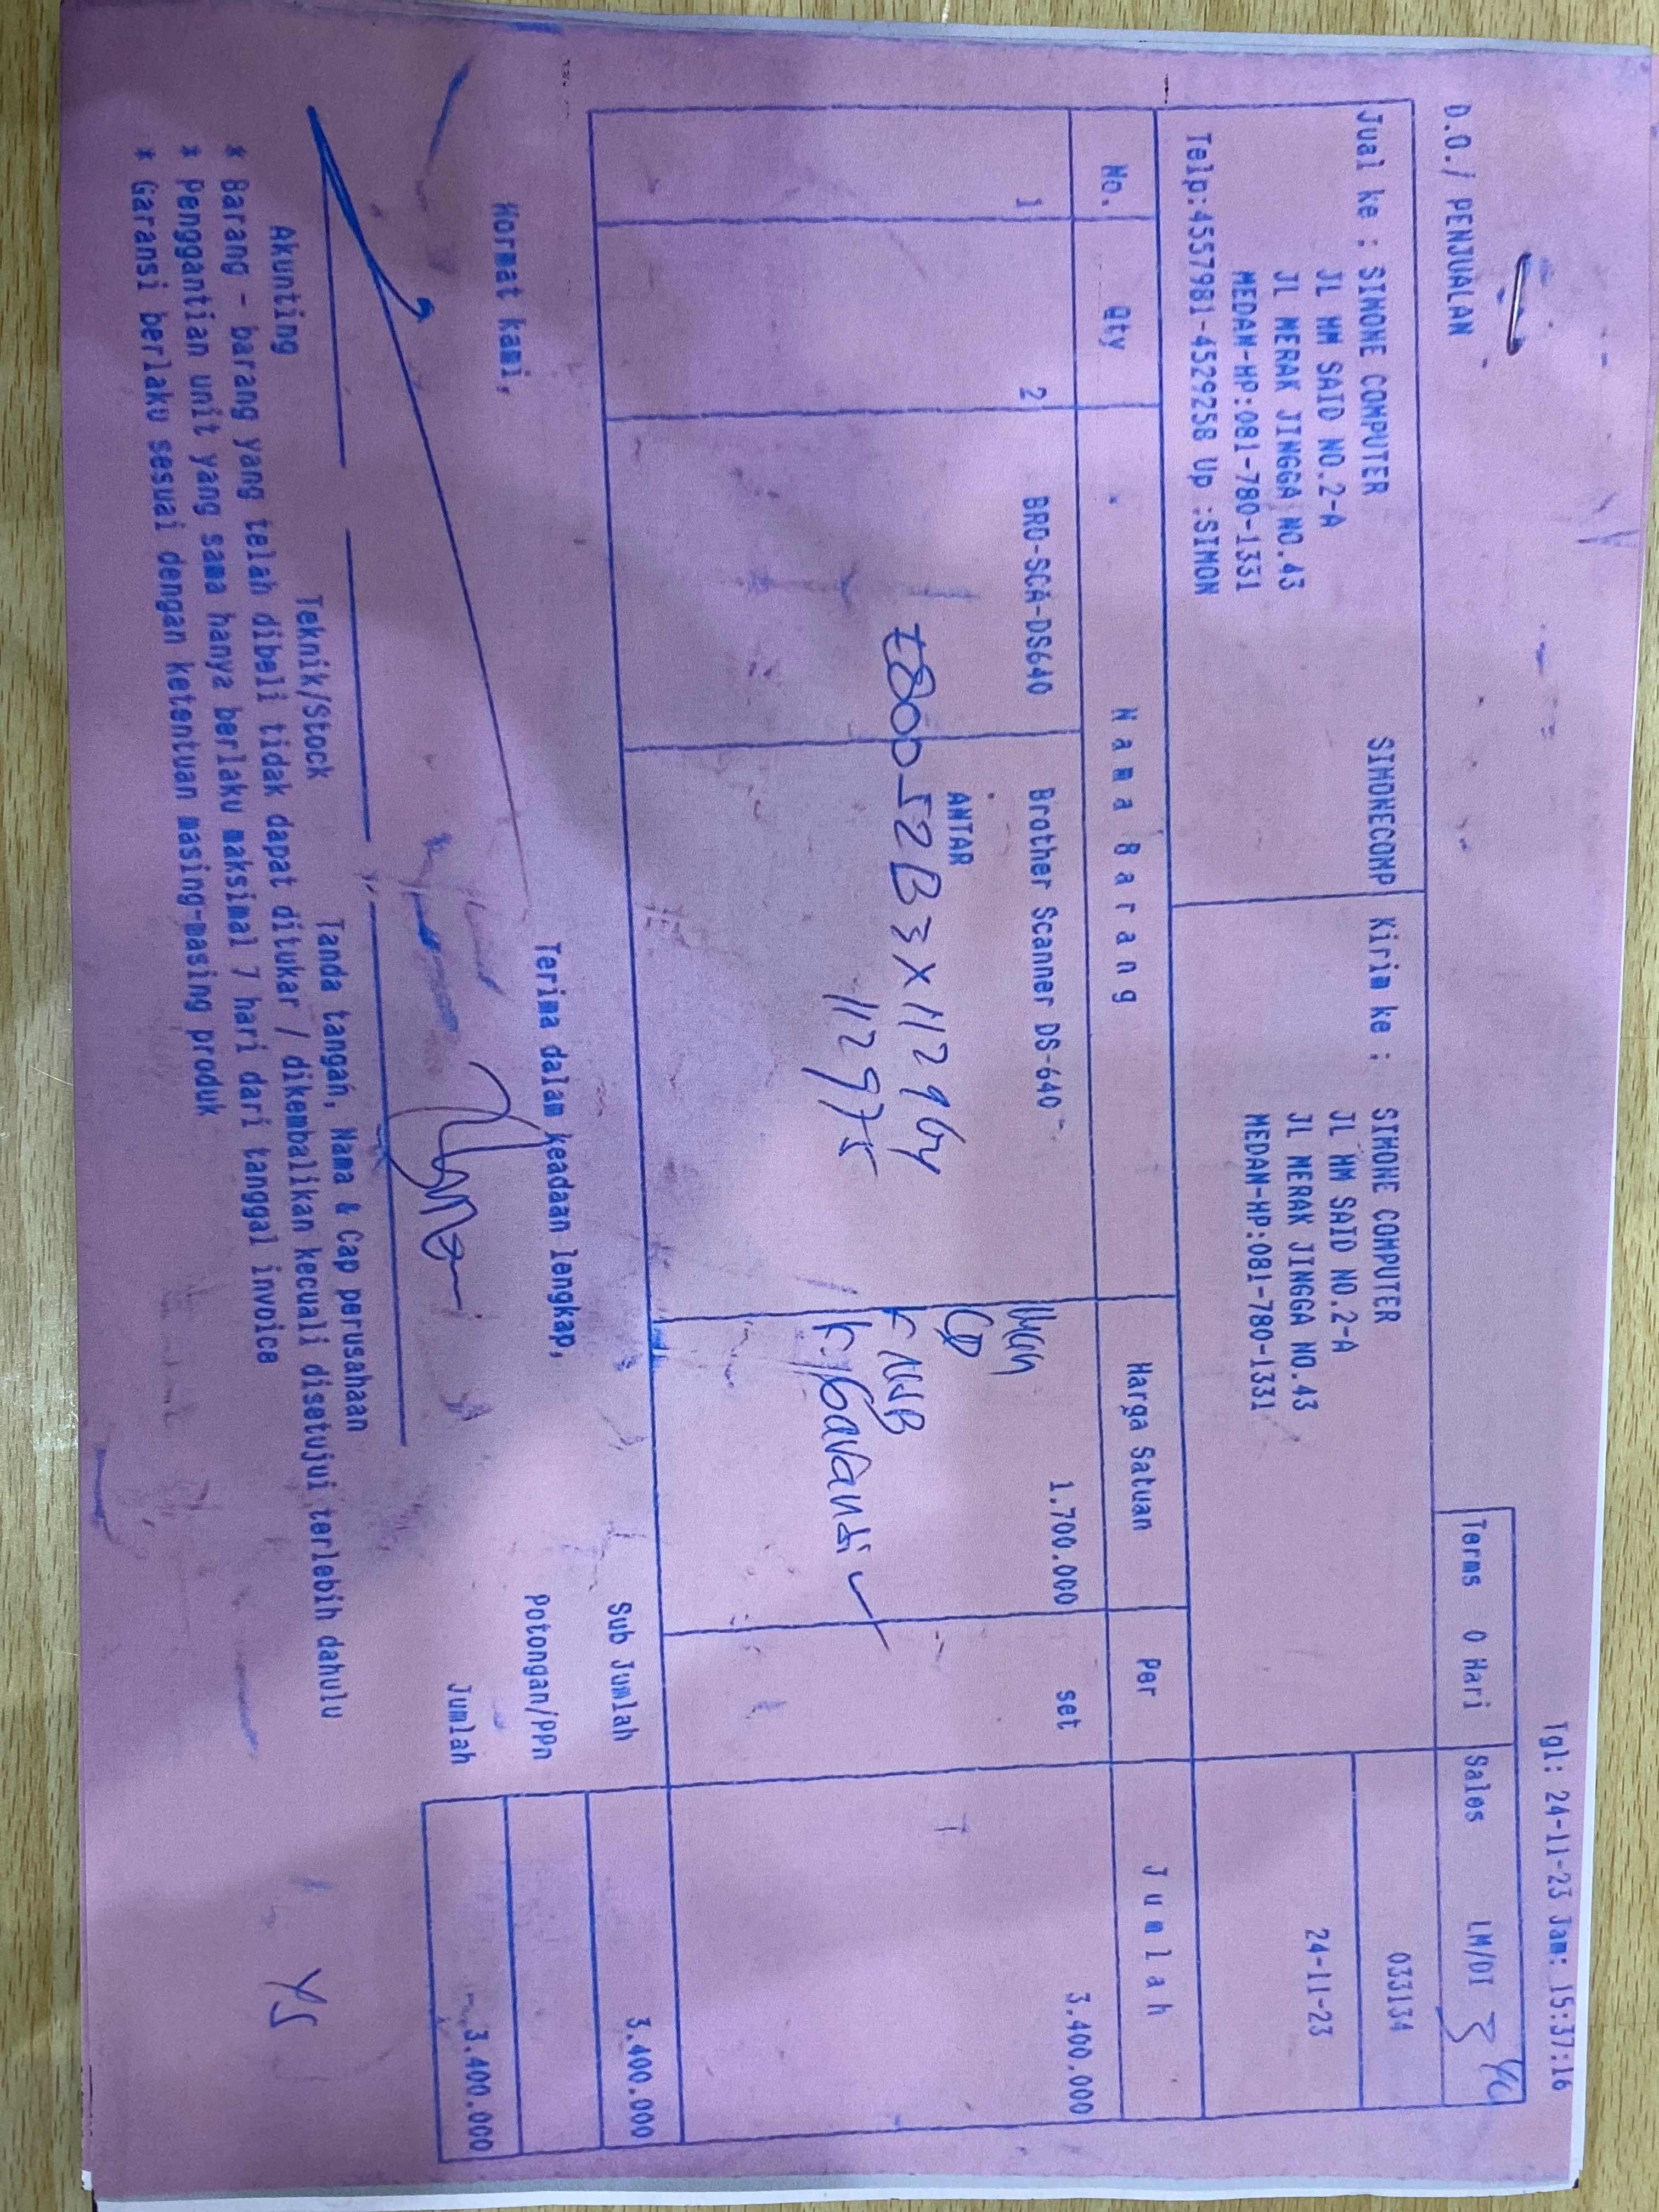 Tgl: 24-11-23 Jam: 15:37:16
D.O./ PENJUALAN
Terms 0 Hari Sales LM/DI
Jual ke : SIMONE COMPUTER SIMONECOMP Kirim ke : SIMONE COMPUTER 033134
JL HM SAID NO.2-A JL HM SAID NO.2-A
JL MERAK JINGGA NO.43 JL MERAK JINGGA NO.43 24-11-23
MEDAN-HP:081-780-1331 MEDAN-HP:081-780-1331
Telp:4557981-4529258 Up :SIMON
No. Qty Nama Barang Harga Satuan Per Jumlah
1 2 BRO-SCA-DS640 Brother Scanner DS-640 1.700.000 set 3.400.000
ANTAR CD
52B3X112964
112975 Garansi ✓
Sub Jumlah 3.400.000
Hormat kami, Terima dalam keadaan lengkap,
Potongan/PPn
Jumlah 3.400.000
Akunting Teknik/Stock Tanda tangan, Nama & Cap perusahaan
* Barang - barang yang telah dibeli tidak dapat ditukar / dikembalikan kecuali disetujui terlebih dahulu
* Penggantian unit yang sama hanya berlaku maksimal 7 hari dari tanggal invoice
* Garansi berlaku sesuai dengan ketentuan masing-masing produk
YS